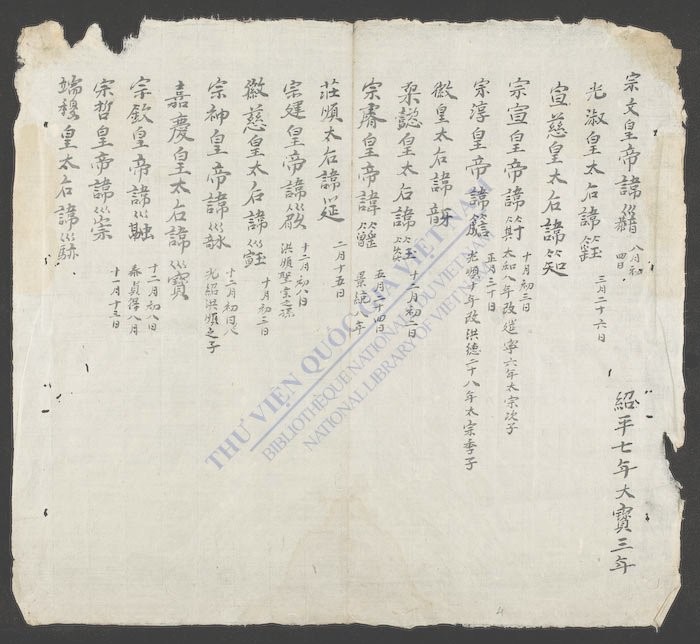 宗文皇帝諱
八月初
四日
紹平七年大寶三年
光淑皇太后諱
三月二十六日
宣慈皇太后諱
宗宣皇帝諱
十月初三日
太和八年改延寧六年太宗次子
宗淳皇帝諱
正月三十日
光順十年改洪德二十八年太宗季子
徽皇太后諱
懿皇太后諱
十二月初二日
宗睿皇帝諱
五月二十四日
景統八年
莊順太后諱
二月十五日
宗建皇帝諱
十二月初八日
洪順聖宗之孫
徽慈皇太后諱
十月初三日
宗神皇帝諱
十二月初日八
光紹洪順之子
嘉慶皇太后諱寶
宗欽皇帝諱
十二月初八日
泰貞得八月
宗哲皇帝諱
十一月十三日
端穆皇太后諱
THƯ VIỆN QUỐC GIA VIỆT NAM
BIBLIOTHÈQUE NATIONALE DU VIETNAM
NATIONAL LIBRARY OF VIETNAM